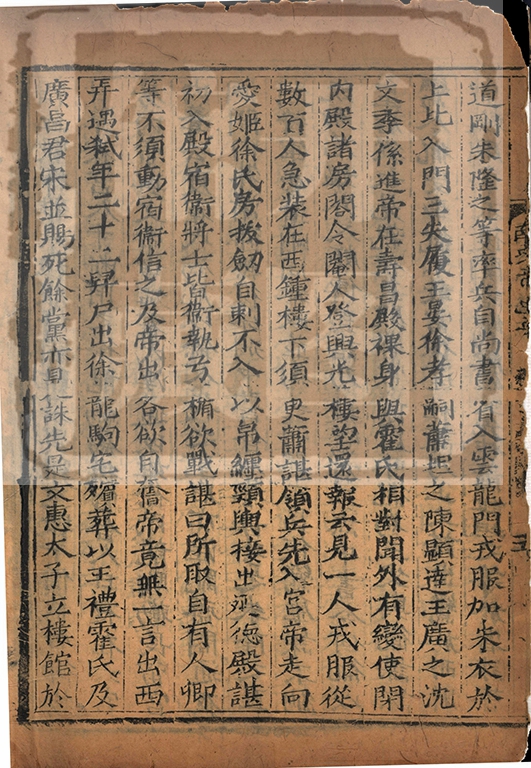 道剛朱隆之等率兵自尚書省入雲龍門戎服加朱衣於
上比入門三失履王晏徐孝嗣蕭坦之陳顯達王廣之沈
文季係進帝在壽昌殿裸身與霍氏相對聞外有變使閉
內殿諸房閣令閹人登興光樓望還報云見一人戎服從
數百人急裝在西鍾樓下須㬰蕭諶領兵先入宮帝走向
愛姬徐氏房拔劒自刺不入以帛纒頸輿棲出延德殿諶
初入殿宿衛將士皆衛執弓楯欲戰諶曰所取自有人卿
等不須動宿衛信之及帝出各欲自奮帝竟無一言出西
弄遇弒年二十二舁尸出徐龍駒宅殯葬以王禮霍氏及
廣昌君宋並賜死餘黨亦見誅先是文惠太子立樓館於